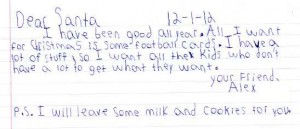 Dear Santa 12-1-12
I have been good all year. All I want
for Christmas is some football cards. I have a
lot of stuff, so I want all the kids who don't
have a lot to get what they want.
your friend.
Alex
P.S. I will leave some milk and cookies for you.